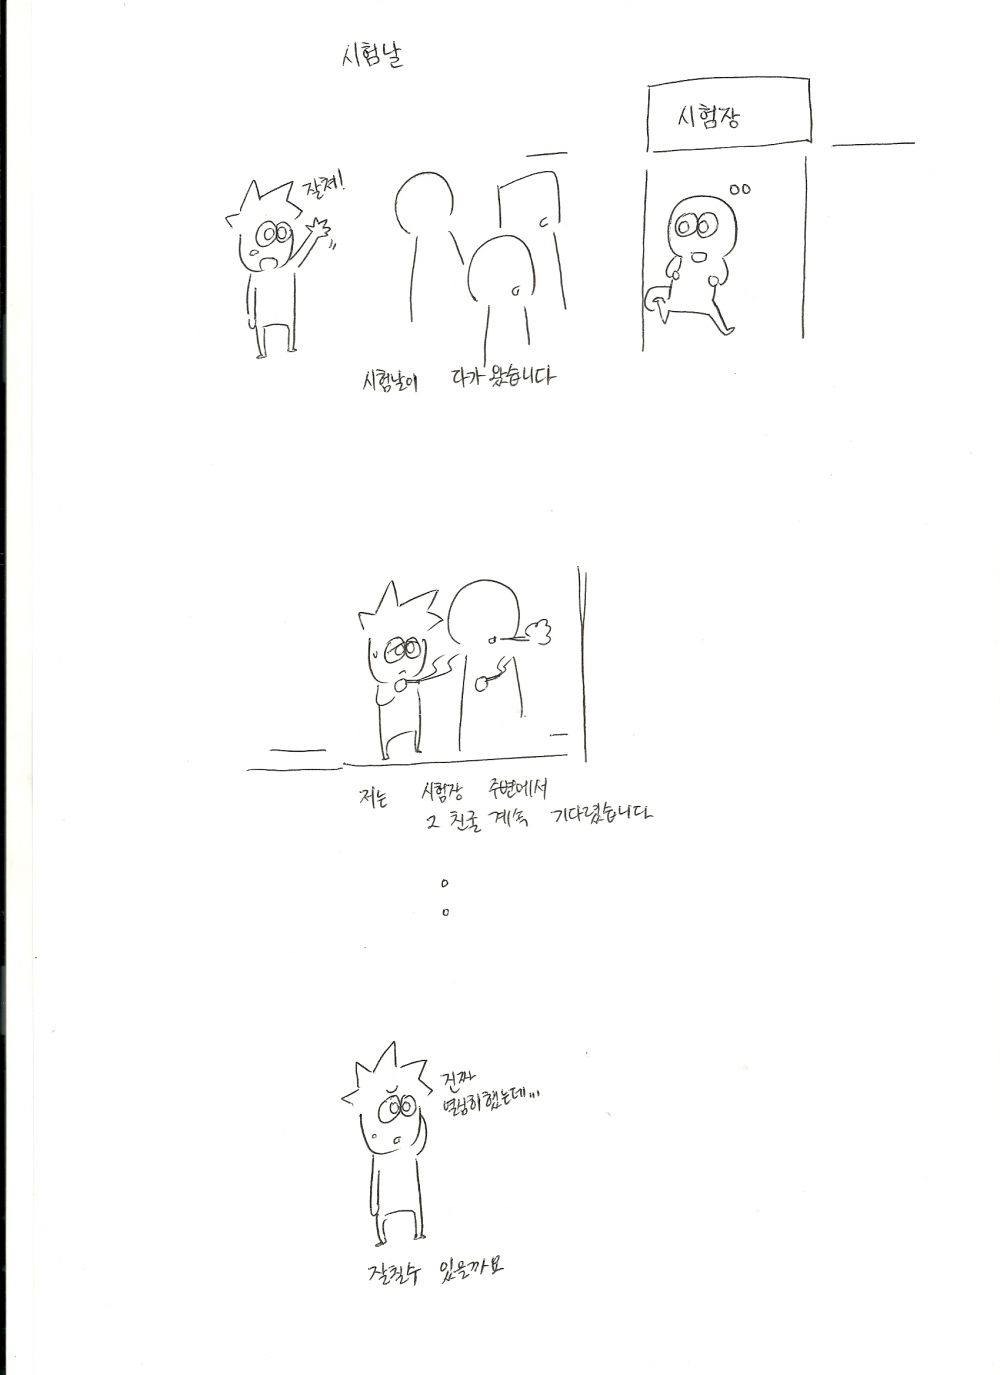 시험날
시험장
잘쳐!
시험날이 다가 왔습니다
저는 시험장 주변에서
그 친굴 계속 기다렸습니다
진짜
열심히 했는데...
잘칠수 있을까요